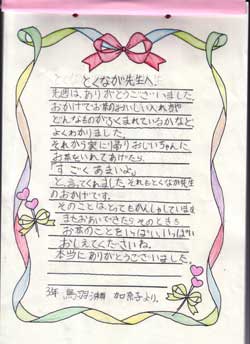 とくなが先生へ!
先週は、ありがとうございました
おかげでお茶のおいしい入れ方や
どんなものがふくまれているかなど
よくわかりました。
それから家に帰りおじいちゃんに
お茶をいれてあげたら、
すごくあまいよ。
と、言ってくれました。それもとくなが先生
のおかげです。
そのことはとってもかんしゃしています
またおあいできたらそのときも
お茶のことをいっぱい、いっぱい
おしえてくださいね。
本当にありがとうございました。
3年 鳥羽瀬 加奈子より。